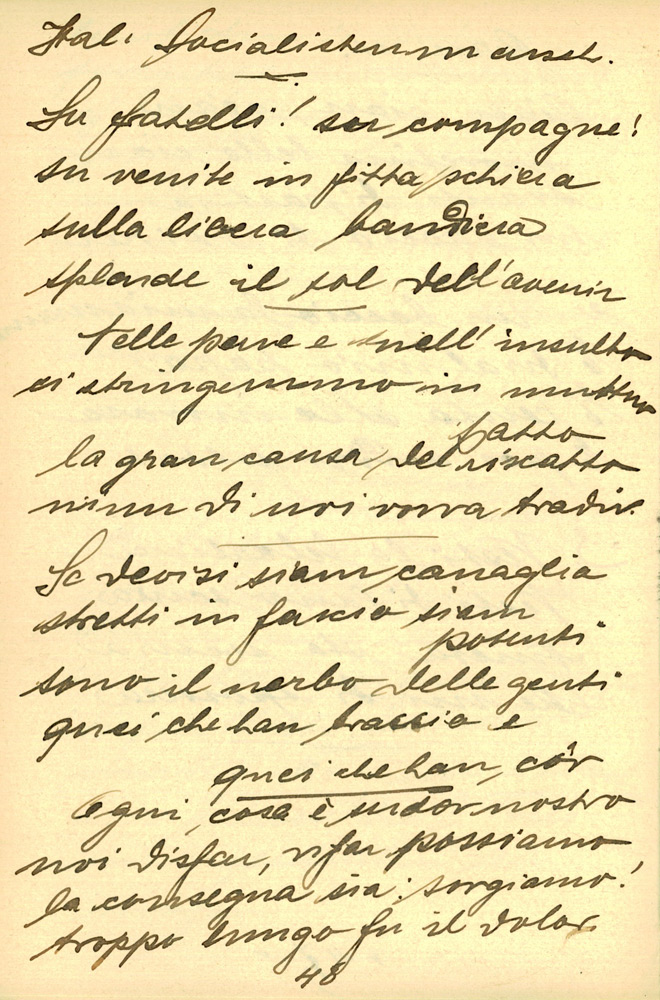 Ital. Socialistenmarsch.
Su fratelli! su compagne!
su venite in fitta schiera
sulla libera bandiera
splende il sol dell'avenir
Nelle pene e nell'insulto
ci stringemmo in muttuo
patto
la gran causa del riscatto
niun di noi vorra tradir.
Se devisi siam canaglia
stretti in fascio siam
potenti
sono il nerbo delle genti
quei che han brassio e
quei che han cor
Ogni cosa è sudor nostro
noi disfar, rifar possiamo
la consegna sia: sorgiamo!
troppo lungo fu il dolor.
48